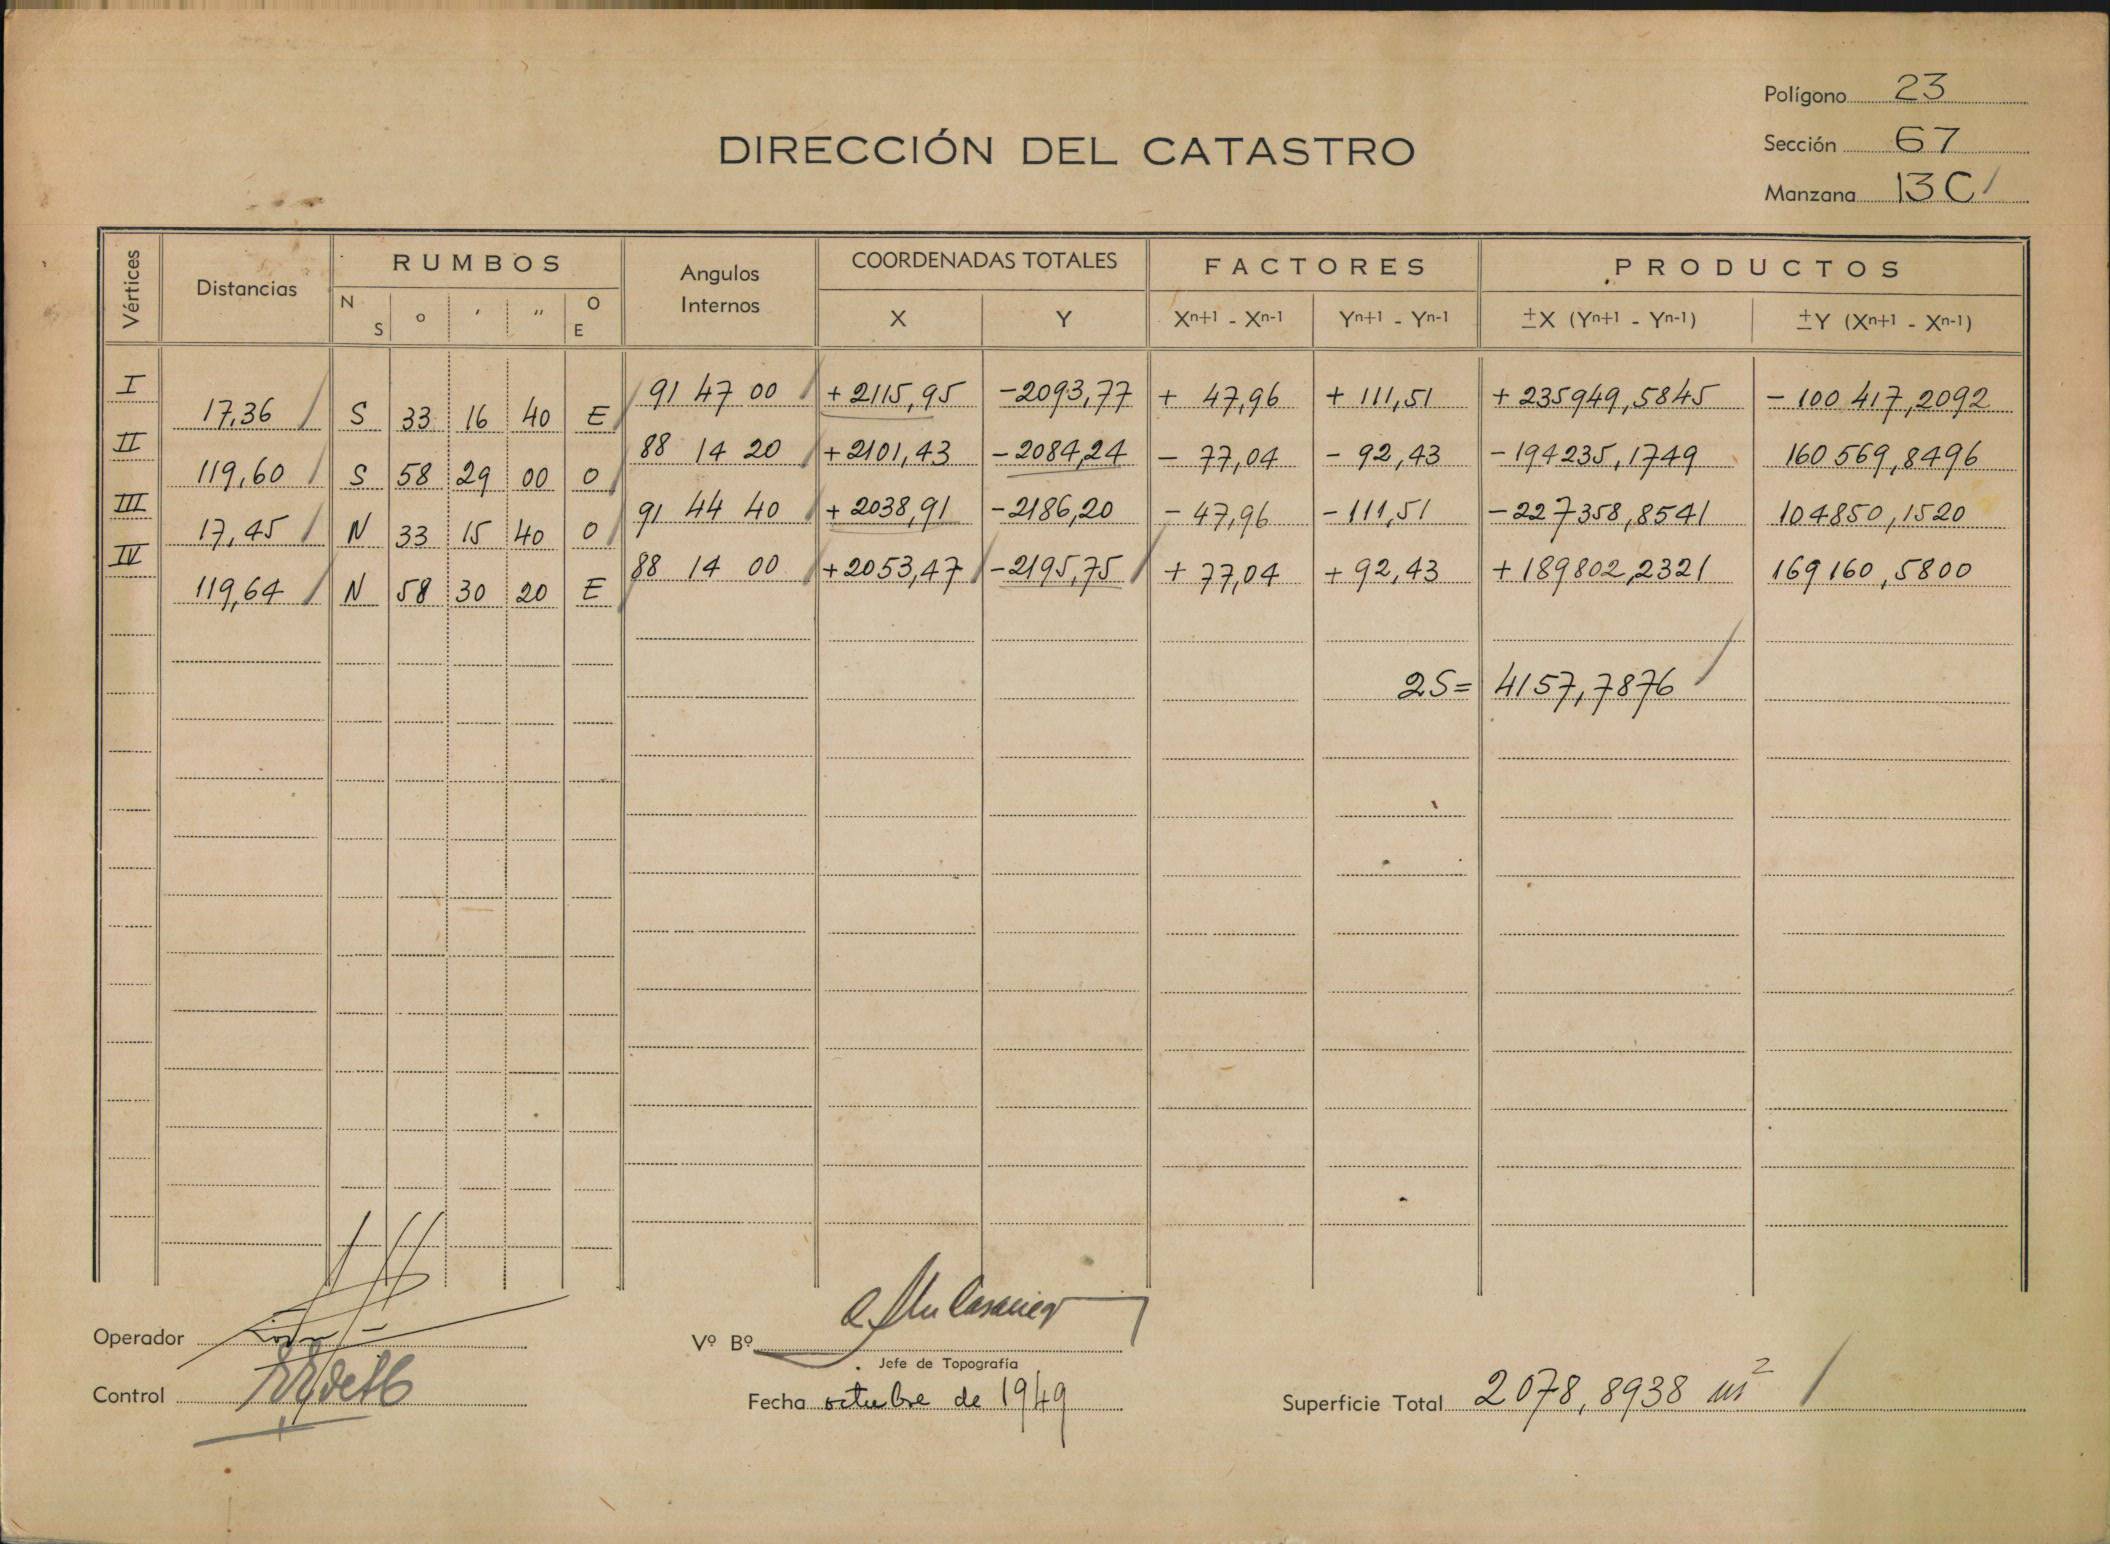 Polígono 23
DIRECCIÓN DEL CATASTRO
Sección 67
Manzana 13C
Vértices Distancias RUMBOS Angulos Internos COORDENADAS TOTALES FACTORES PRODUCTOS
N S o ' " O E X Y Xn+1 - Xn-1 Yn+1 - Yn-1 ±X (Yn+1 - Yn-1) ±Y (Xn+1 - Xn-1)
I 91 47 00 +2115,95 -2093,77 + 47,96 + 111,51 + 235949,5845 - 100 417,2092
17,36 S 33 16 40 E
II 88 14 20 +2101,43 -2084,24 - 77,04 - 92,43 - 194235,1749 160 569,8496
119,60 S 58 29 00 O
III 91 44 40 + 2038,91 -2186,20 - 47,96 - 111,51 - 227358,8541 104850,1520
17,45 N 33 15 40 O
IV 88 14 00 +2053,47 -2195,75 + 77,04 + 92,43 + 189802,2321 169160,5800
119,64 N 58 30 20 E
2S= 4157,7876
Operador
Vº Bº
Jefe de Topografía
Control
Fecha octubre de 1949
Superficie Total 2078,8938 m²